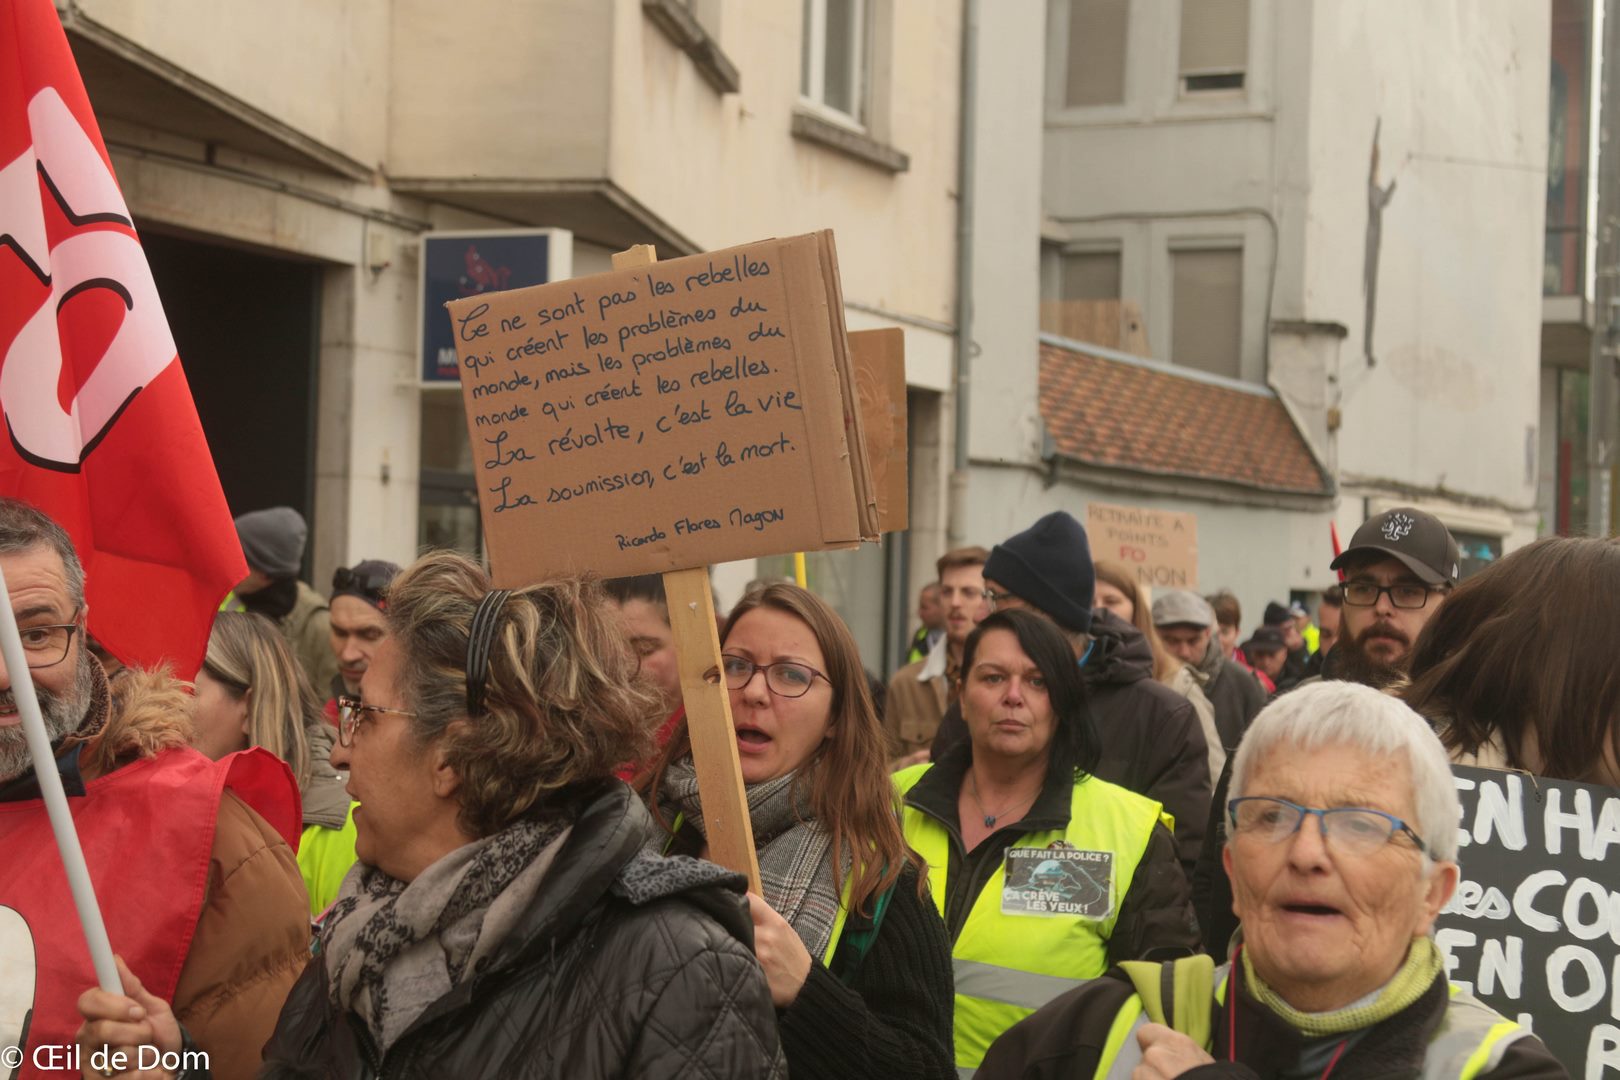 Ce ne sont pas les rebelles
qui créent les problèmes du
monde, mais les problèmes du
monde qui créent les rebelles.
La révolte, c'est la vie
La soumission, c'est la mort.
Ricardo Flores Magon
RETRAITE A
POINTS
FO
NON
QUE FAIT LA POLICE ?
ÇA CRÈVE
LES YEUX !
EN HA
les CO
EN O
© Œil de Dom